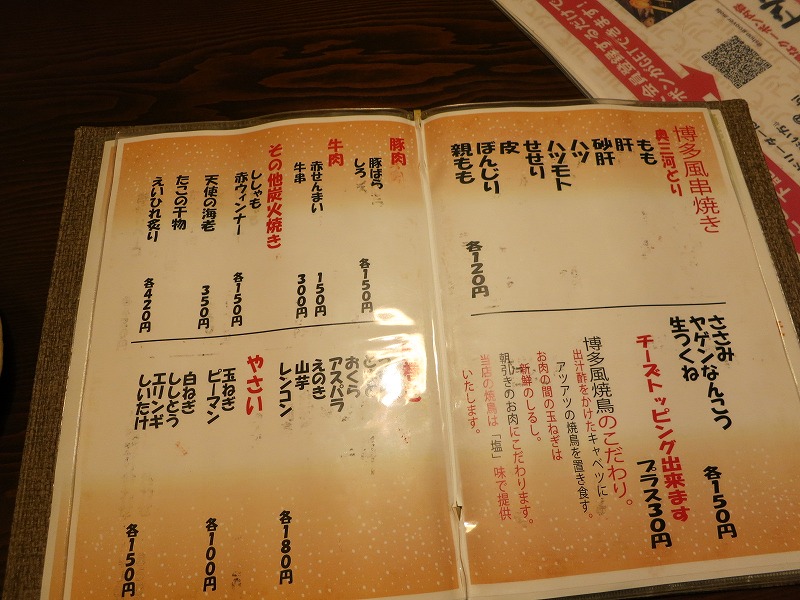 博多風串焼き
奥三河どり
もも
肝
砂肝
ハツ
ハツモト
せせり
皮
ぼんじり
親もも
各120円
ささみ
ヤゲンなんこう
生つくね
各150円
チーズトッピング出来ます
プラス30円
博多風焼鳥のこだわり。
出汁酢をかけたキャベツに
アツアツの焼鳥を置き食す。
お肉の間の玉ねぎは
新鮮のしるし。
朝引きのお肉にこだわります。
当店の焼鳥は「塩」味で提供
いたします。
豚肉
豚ばら
しろ
各150円
牛肉
赤せんまい
150円
牛串
300円
その他炭火焼き
ししゃも
赤ウィンナー
各150円
天使の海老
350円
たこの干物
えいひれ炙り
各420円
おくら
アスパラ
えのき
山芋
レンコン
各180円
やさい
玉ねぎ
ピーマン
各100円
白ねぎ
ししとう
エリンギ
しいたけ
各150円
会員登録するだけで
ポンがGETできます!